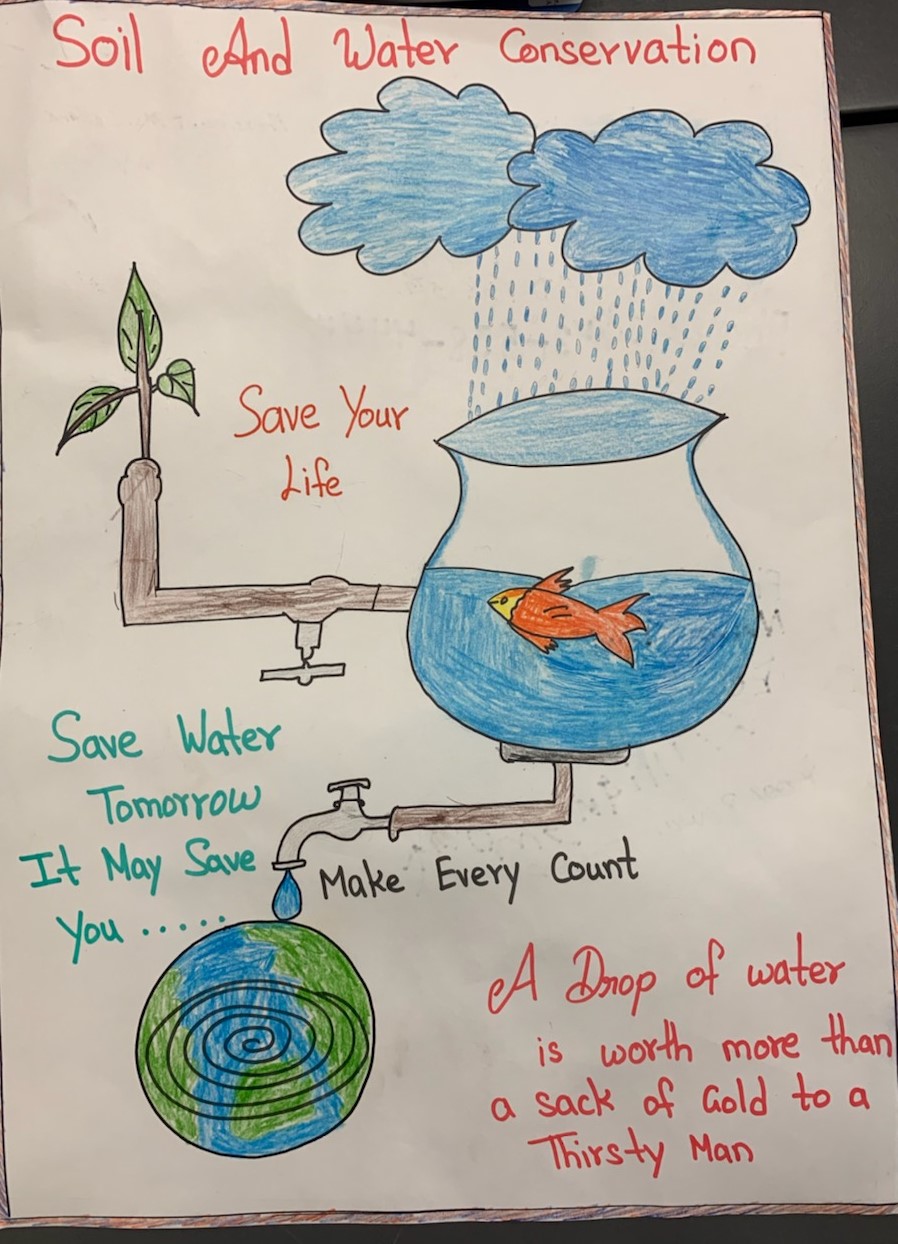 Soil And Water Conservation
Save Your
Life
Save Water
Tomorrow
It May Save
You .....
Make Every Count
A Drop of water
is worth more than
a sack of Gold to a
Thirsty Man